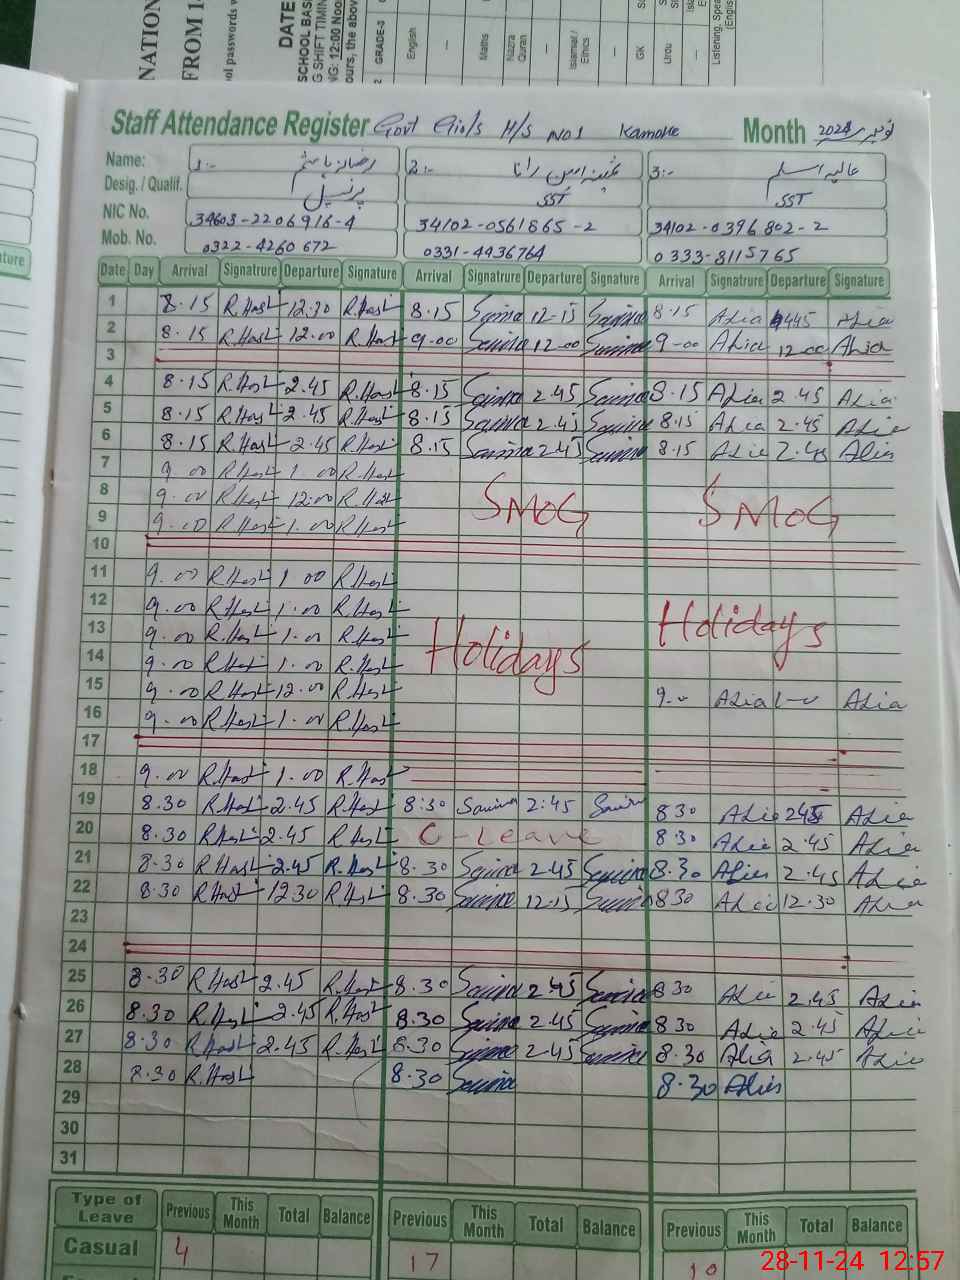 NATION
FROM 1-
ool passwords w
DATE
SCHOOL BASE
G SHIFT TIMIN
NG: 12:00 Noo
ours, the above
GRADE-3
English
Maths
Nazra Quran
Islamiat / Ethics
GK
Urdu
Listening, Spea
(English
Staff Attendance Register Govt Girls H/S No1 Kamoke Month نومبر 2024
Name: 1:- رضانہ ہاشم 2:- 3:- عالیہ اسلم
Desig. / Qualif. پرنسپل SST SST
NIC No. 34603-2206916-4 34102-0561865-2 34102-0396802-2
Mob. No. 0322-4260672 0331-4936764 0333-8115765
Date Day Arrival Signatrure Departure Signature Arrival Signatrure Departure Signature Arrival Signatrure Departure Signature
1 8.15 R.Hash 12:30 R.Hash 8.15 Saima 12-15 Saima 8.15 Alia 445 Alia
2 8.15 R.Hash 12.00 R.Hash 9-00 Saima 12-00 Saima 9-00 Alia 12.00 Alia
3
4 8.15 R.Hash 2.45 R.Hash 8.15 Saima 2.45 Saima 8.15 Alia 2.45 Alia
5 8.15 R.Hash 2.45 R.Hash 8.15 Saima 2.45 Saima 8.15 Alia 2.45 Alia
6 8.15 R.Hash 2.45 R.Hash 8.15 Saima 2.45 Saima 8.15 Alia 2.45 Alia
7 9.00 R.Hash 1.00 R.Hash
8 9.00 R.Hash 12:00 R.Hash SMOG SMOG
9 9.00 R.Hash 1.00 R.Hash
10
11 9.00 R.Hash 1.00 R.Hash
12 9.00 R.Hash 1.00 R.Hash
13 9.00 R.Hash 1.00 R.Hash Holidays Holidays
14 9.00 R.Hash 1.00 R.Hash
15 9.00 R.Hash 12.00 R.Hash 9-0 Alia 1-0 Alia
16 9.00 R.Hash 1.00 R.Hash
17
18 9.00 R.Hash 1.00 R.Hash
19 8.30 R.Hash 2.45 R.Hash 8:30 Saima 2:45 Saima 8 30 Alia 245 Alia
20 8.30 R.Hash 2.45 R.Hash C-Leave 8 30 Alia 2.45 Alia
21 8.30 R.Hash 2.45 R.Hash 8.30 Saima 2.45 Saima 8.30 Alia 2.45 Alia
22 8.30 R.Hash 12.30 R.Hash 8.30 Saima 12.15 Saima 8 30 Alia 12.30 Alia
23
24
25 8.30 R.Hash 2.45 R.Hash 8.30 Saima 2.45 Saima 8 30 Alia 2.45 Alia
26 8.30 R.Hash 2.45 R.Hash 8.30 Saima 2.45 Saima 8 30 Alia 2.45 Alia
27 8.30 R.Hash 2.45 R.Hash 8.30 Saima 2.45 Saima 8.30 Alia 2.45 Alia
28 8.30 R.Hash 8.30 Saima 8.30 Alia
29
30
31
Type of Leave Previous This Month Total Balance Previous This Month Total Balance Previous This Month Total Balance
Casual 4 17 10
28-11-24 12:57